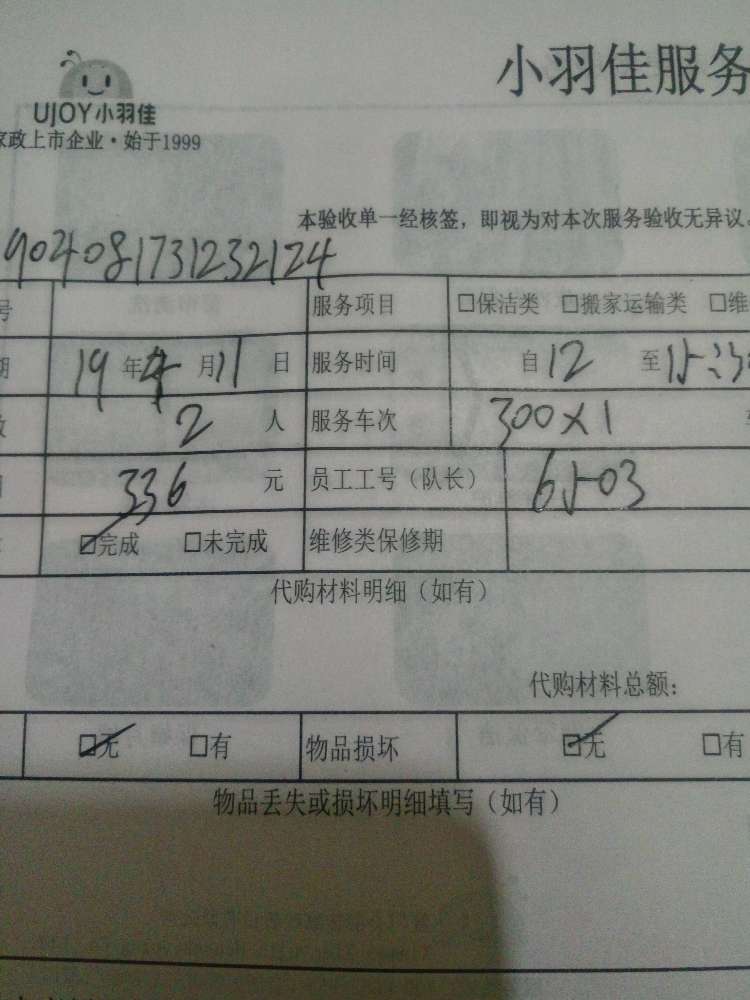 小羽佳服务
UJOY小羽佳
家政上市企业·始于1999
本验收单一经核签，即视为对本次服务验收无异议
904081731232124
号 服务项目 □保洁类 □搬家运输类 □维
期 19年4月11日 服务时间 自12 至15:30
数 2人 服务车次 300×1
336元 员工工号（队长） 6503
☑完成 □未完成 维修类保修期
代购材料明细（如有）
代购材料总额：
☑无 □有 物品损坏 ☑无 □有
物品丢失或损坏明细填写（如有）